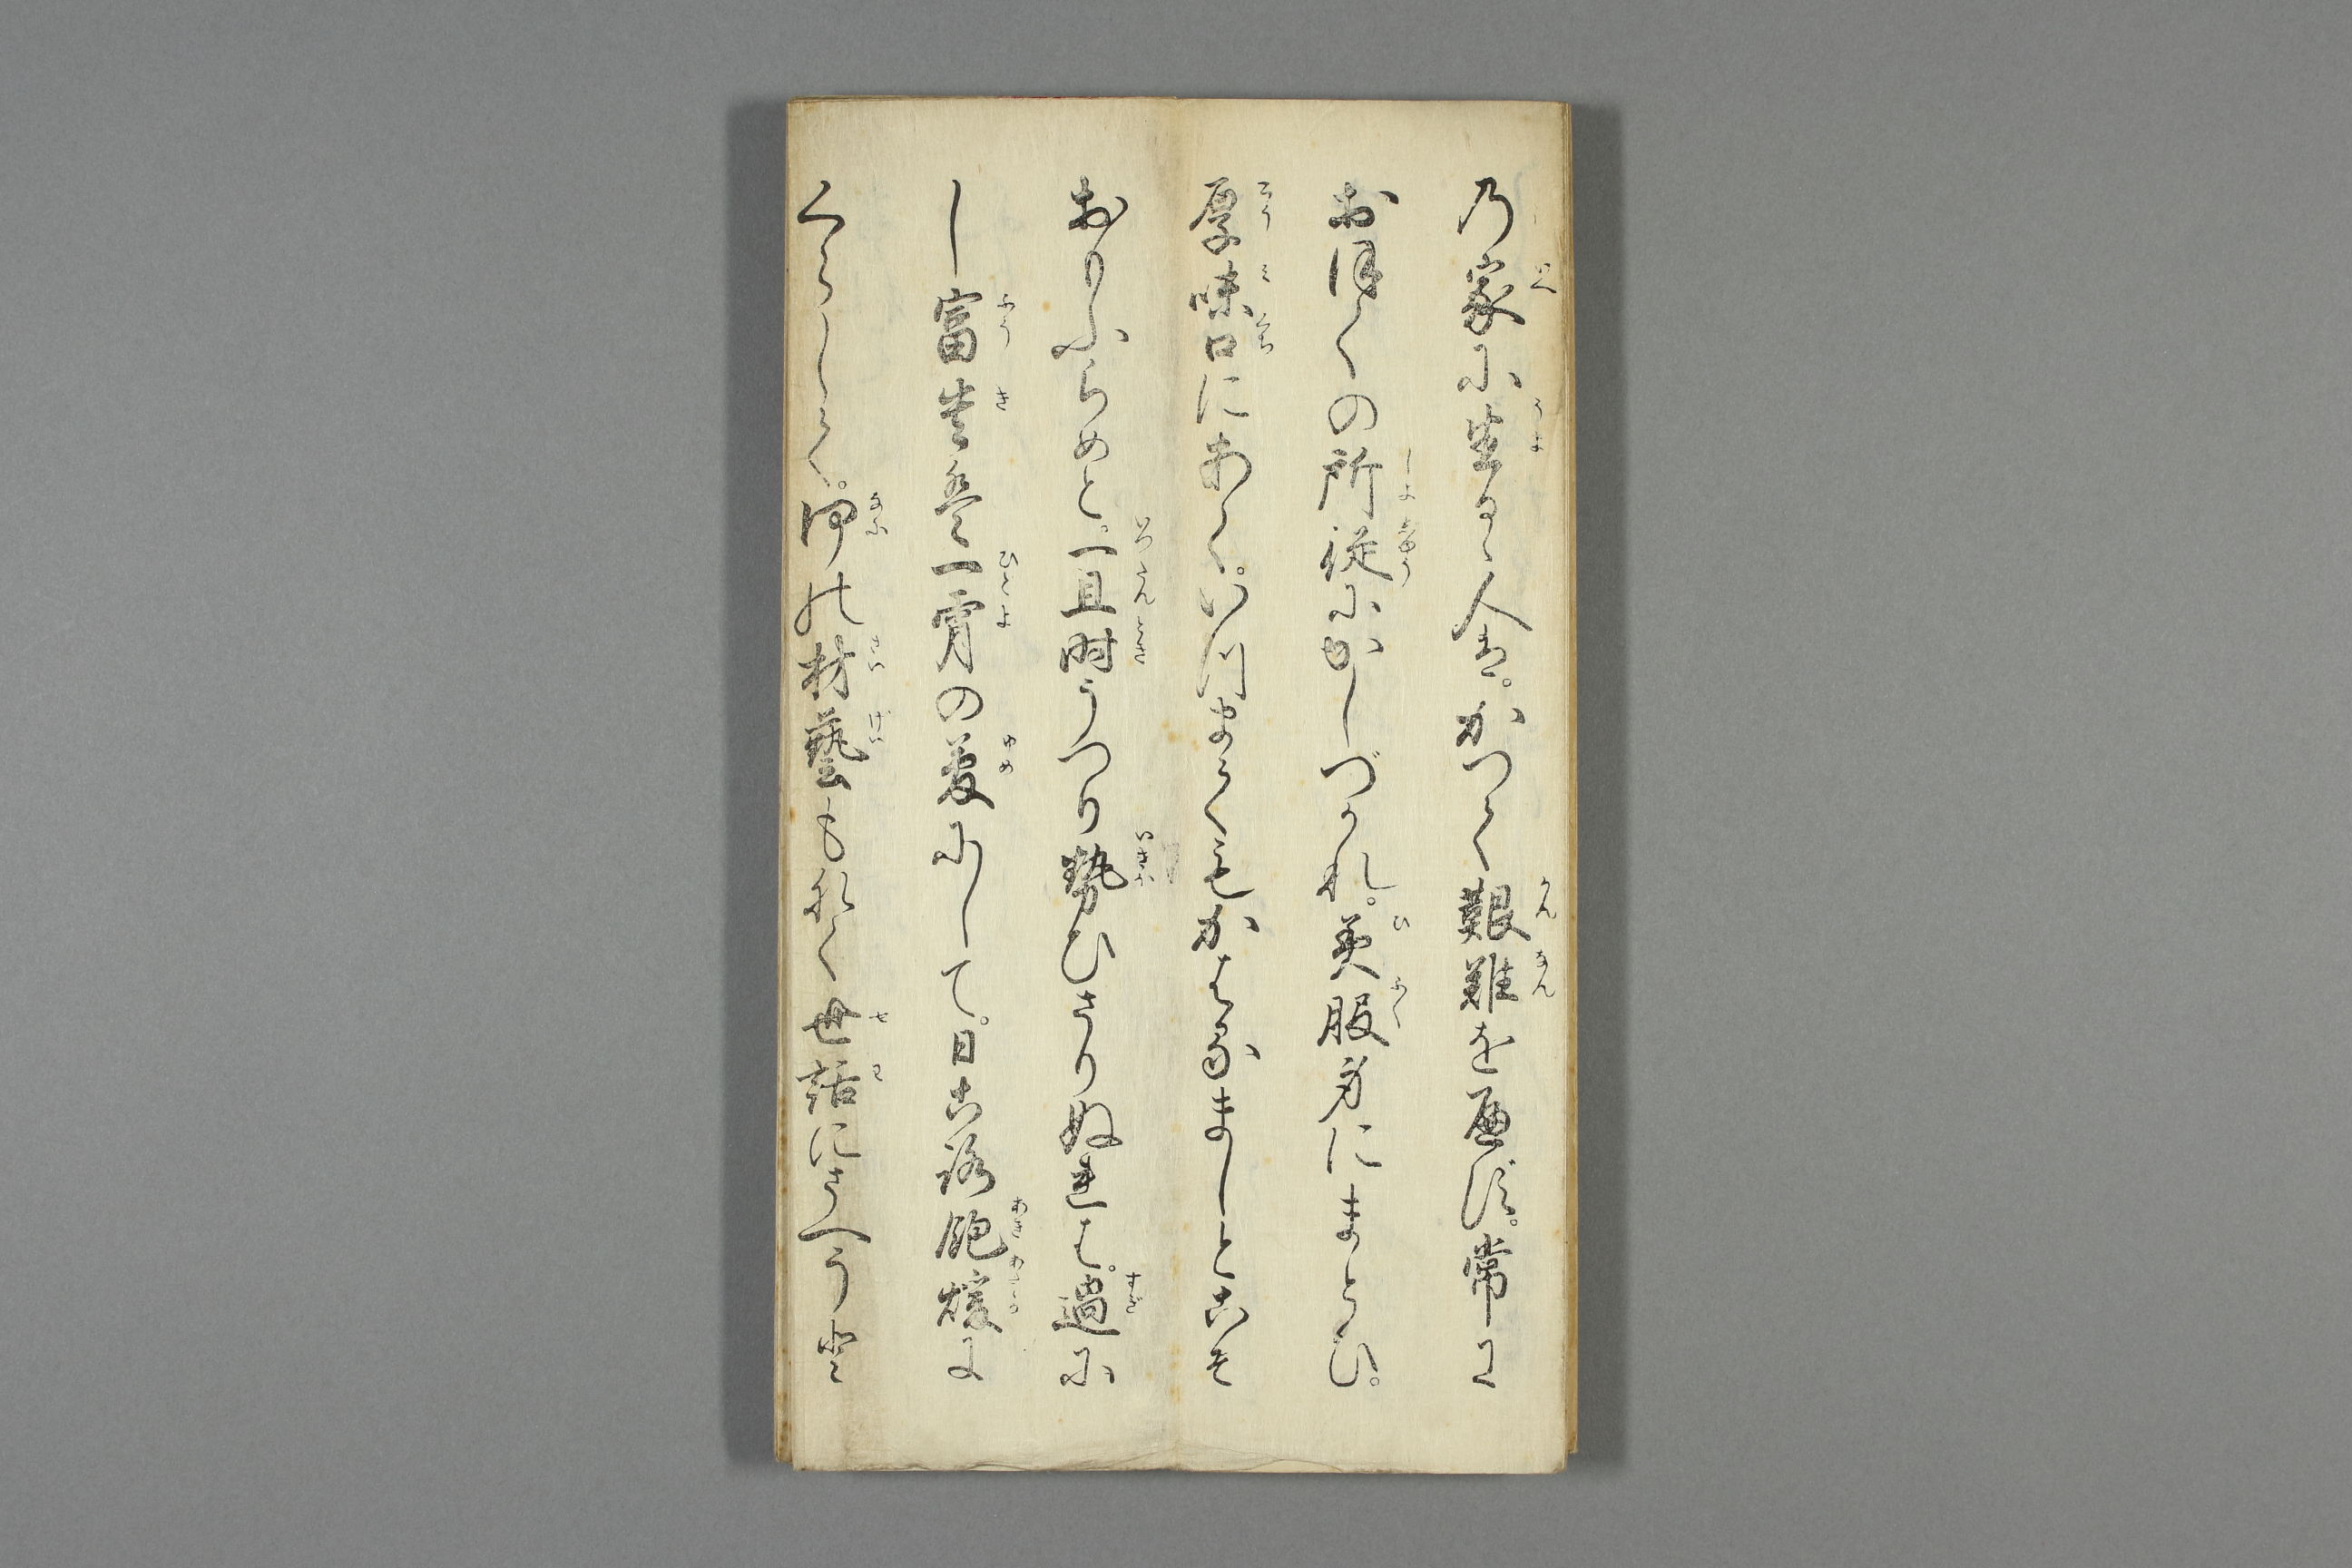 の家に生るゝ人は。かつて艱難を歴ず。常に
おほくの所従にかしづかれ。美服身にまとひ。
厚味口にあく。いつまでもかはるまじとこそ
おもふらめど。一旦時うつり勢ひさりぬれば。過に
し富貴は一宵の夢にして。日ころ飽煖に
くらして。何の材藝もなく世話にさへうと